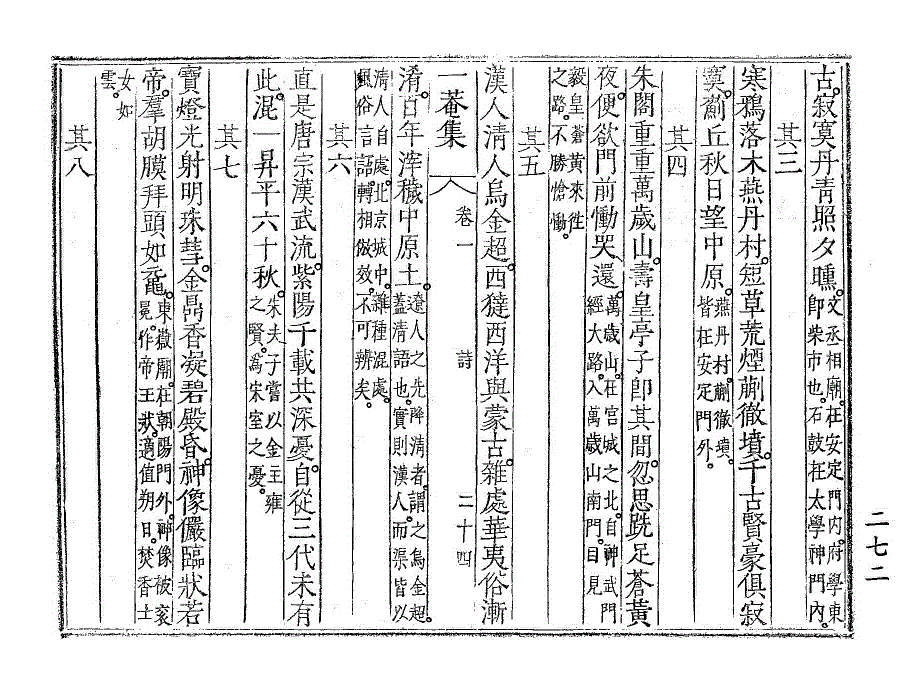 古。寂寞丹青照夕曛。文丞相廟。在安定門內。府學東
卽柴市也。石鼓在太學神門內。
其三
寒鴉落木燕丹村。短草荒煙蒯徹墳。千古賢豪俱寂
寞。薊丘秋日望中原。燕丹村。蒯徹墳。
皆在安定門外。
其四
朱閣重重萬歲山。壽皇亭子卽其間。忽思跣足蒼黃
夜。便欲門前慟哭還。萬歲山。在宮城之北。自神武門
經大路。入萬歲山南門。目見
毅皇蒼黃來往
之路。不勝愴慟。
其五
漢人淸人烏金超。西㺚西洋與蒙古。雜處華夷俗漸
一菴集
卷一
詩
二十四
淆。百年滓穢中原土。遼人之先降淸者。謂之烏金超。
蓋淸語也。實則漢人。而渠皆以
淸人自處。北京城中。雜種混處。
風俗言語。轉相倣效。不可辨矣。
其六
直是唐宗漢武流。紫陽千載共深憂。自從三代未有
此。混一昇平六十秋。朱夫子嘗以金主雍
之賢。爲宋室之憂。
其七
寶燈光射明珠彗。金鼎香凝碧殿昏。神像儼臨狀若
帝。羣胡膜拜頭如黿。東嶽廟。在朝陽門外。神像被衮
冕。作帝王狀。適値朔日。焚香士
女如
雲。
其八
二七二